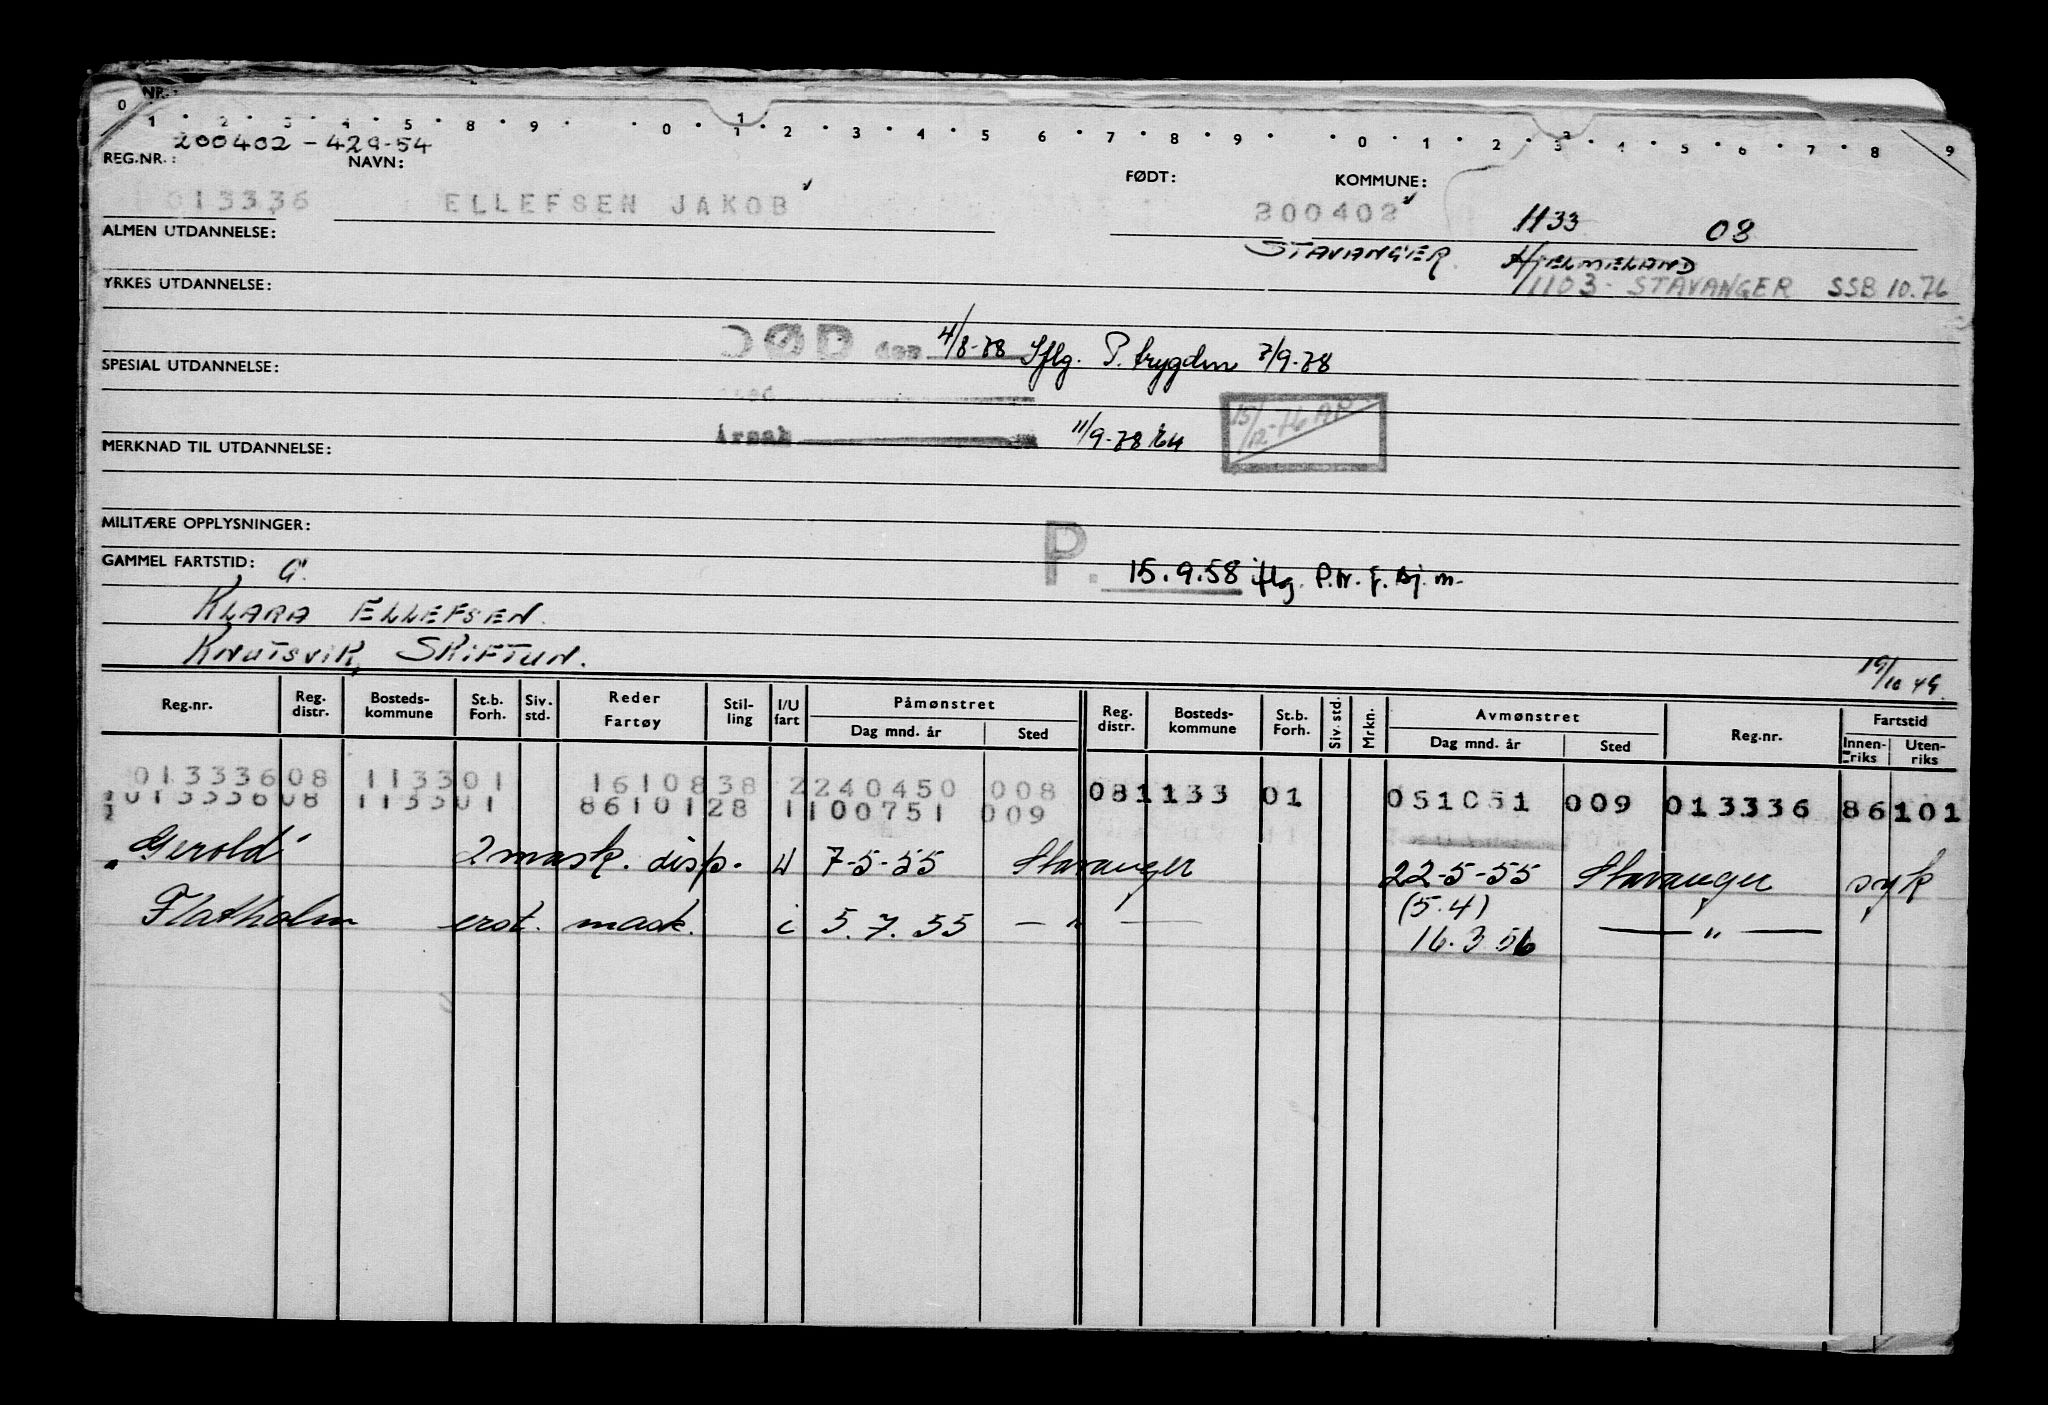 NR.:
0 1 2 3 4 5 8 9 0 1 2 3 4 5 6 7 8 9 0 1 2 3 4 5 6 7 8 9
200402-429-54
REG.NR.: NAVN: FØDT: KOMMUNE:
013336 ELLEFSEN JAKOB 200402 1133 08
ALMEN UTDANNELSE: STAVANGER. HJELMELAND
YRKES UTDANNELSE: 1103- STAVANGER SSB 10.76
DØD den 4/8-78 Iflg. P. trygden 7/9-78
SPESIAL UTDANNELSE:
15/12-76 AP
Årsak 11/9-78
MERKNAD TIL UTDANNELSE:
MILITÆRE OPPLYSNINGER:
GAMMEL FARTSTID: G.
P. 15.9.58 iflg. P.tr. f. sj.m.
KLARA ELLEFSEN.
KNUTSVIK, SKIFTUN.
19/10 49.
Reg.nr. Reg. distr. Bosteds-kommune St.b. Forh. Siv. std. Reder Fartøy Stil-ling I/U fart Påmønstret Dag mnd. år Sted Reg. distr. Bosteds-kommune St.b. Forh. Siv. std. Mrkn. Avmønstret Dag mnd. år Sted Reg.nr. Fartstid Innen-riks Uten-riks
01333608 113301 1610838 2240450 008
01333608 113301 8610128 1100751 009 081133 01 051051 009 013336 86101
Gerold 2 mask. disp. U 7-5-55 Stavanger 22-5-55 Stavanger syk
(5.4)
Flatholm erst. mask. i 5.7.55 — " — 16.3 56 — " —